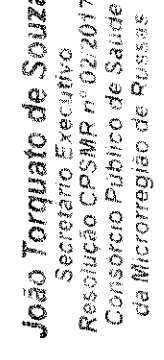 João Torquato de Souza
Secretário Executivo
Resolução CPSMR nº 02/2017
Consórcio Público de Saúde
da Microrregião de Russas